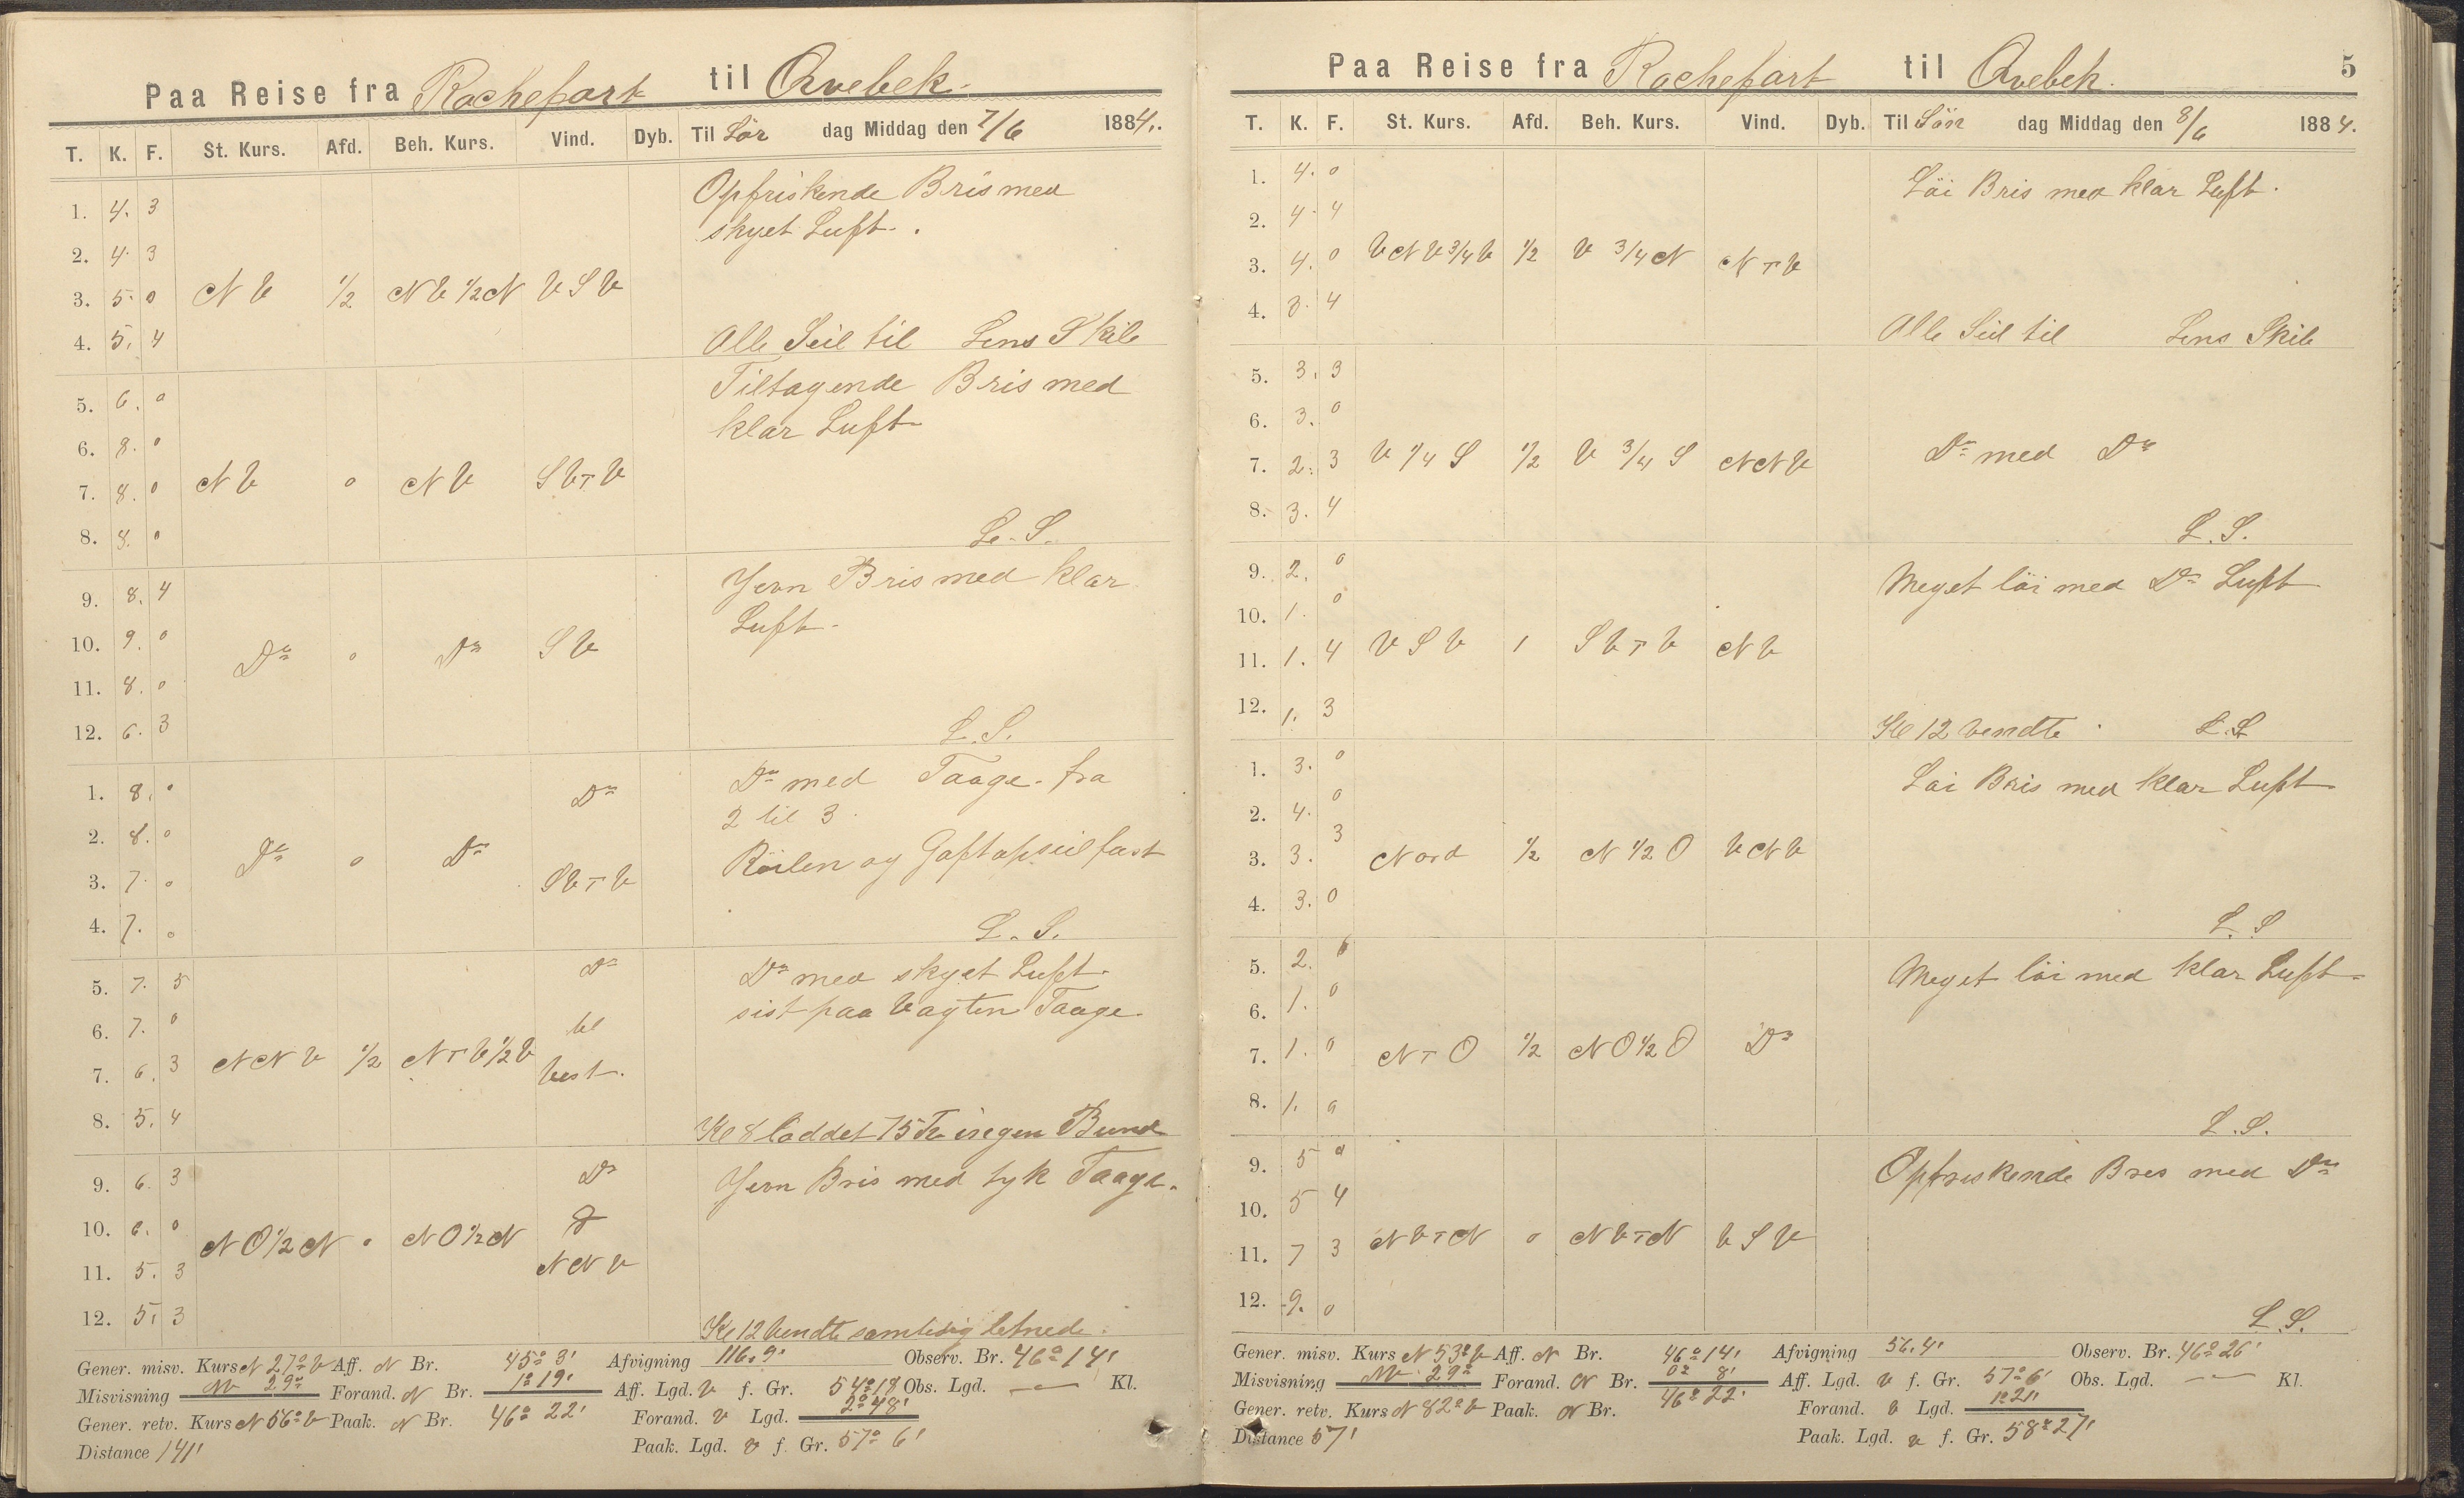 Paa Reise fra Rochefort til Qvebek.
T. K. F. St. Kurs. Afd. Beh. Kurs. Vind. Dyb. Til Lör dag Middag den 7/6 1884.
Opfriskende Bris med
1. 4. 3
skyet Luft.
2. 4. 3
3. 5. 0 NV 1/2 NV 1/2 N VSV
4. 5. 4 Alle Seil til Lens Skib
Tiltagende Bris med
5. 6. 0
klar Luft
6. 8. 0
7. 8. 0 NV 0 NV SVTV
8. 8. 0 L. S.
Jevn Bris med klar
9. 8. 4
Luft.
10. 9. 0 Do 0 Do SV
11. 8. 0
12. 6. 3 L. S.
Do med Taage fra
1. 8. 0 Do
2 til 3.
2. 8. 0 Do 0 Do
Röilen og Gaftopseil fast
3. 7. 0 SVTV
4. 7. 0 L. S.
Do med skyet Luft.
5. 7. 5 Do
sist paa Vagten Taage.
6. 7. 0 til
7. 6. 3 NNV 1/2 NTV 1/2 V Vest.
8. 5. 4 Kl 8 loddet 75 Fv ingen Bund
9. 6. 3 Do Jevn Bris med tyk Taage.
10. 6. 0 NO 1/2 N 0 NO 1/2 N
11. 5. 3 NNV
12. 5. 3 Kl 12 Vendte samtidig letnede.
Gener. misv. Kurs N 27° V Aff. N Br. 45° 3' Afvigning 116.9' Observ. Br. 46° 14'
Misvisning NV 29° Forand. N Br. 1° 19' Aff. Lgd. V f. Gr. 54° 18 Obs. Lgd. — Kl.
Gener. retv. Kurs N 56° V Paak. N Br. 46° 22' Forand. V Lgd. 2° 48'
Distance 141' Paak. Lgd. V f. Gr. 57° 6'
Paa Reise fra Rochefort til Qvebek. 5
T. K. F. St. Kurs. Afd. Beh. Kurs. Vind. Dyb. Til Sön dag Middag den 8/6 1884.
1. 4. 0 Löi Bris med klar Luft.
2. 4. 4
3. 4. 0 VNV 3/4 V 1/2 V 3/4 N NTV
4. 3. 4 Alle Seil til Lens Skib
5. 3. 3
6. 3. 0
7. 2. 3 V 1/4 S 1/2 V 3/4 S NNV Do med Do
8. 3. 4 L. S.
9. 2. 0 Meget löi med Do Luft
10. 1. 0
11. 1. 4 VSV 1 SVTV NV
12. 1. 3 Kl 12 vendte L. S.
1. 3. 0 Löi Bris med klar Luft
2. 4. 0
3. 3. 3 Nord 1/2 N 1/2 O VNV
4. 3. 0 L. S
5. 2. 0 Meget löi med klar Luft
6. 1. 0
7. 1. 0 NTO 1/2 NO 1/2 O Do
8. 1. 0 L. S.
9. 5 0 Opfriskende Bris med Do
10. 5 4
11. 7 3 NVTN 0 NVTN VSV
12. 9. 0 L. S.
Gener. misv. Kurs N 53° V Aff. N Br. 46° 14' Afvigning 56.4' Observ. Br. 46° 26'
Misvisning NV 29° Forand. N Br. 0° 8' Aff. Lgd. V f. Gr. 57° 6' Obs. Lgd. — Kl.
Gener. retv. Kurs N 82° V Paak. N Br. 46° 22' Forand. V Lgd. 1° 21'
Distance 57' Paak. Lgd. V f. Gr. 58° 27'